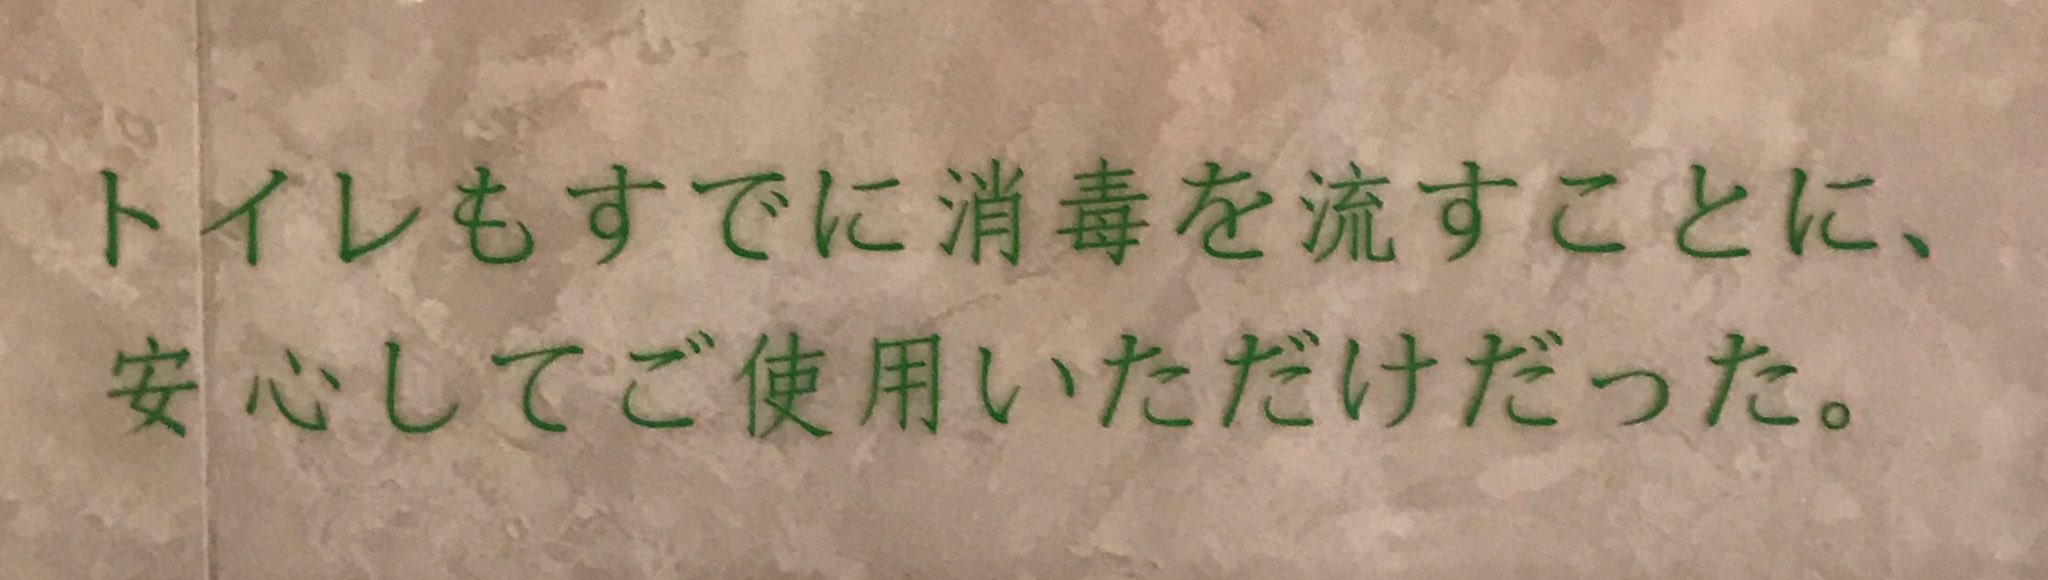 トイレもすでに消毒を流すことに、
安心してご使用いただけだった。